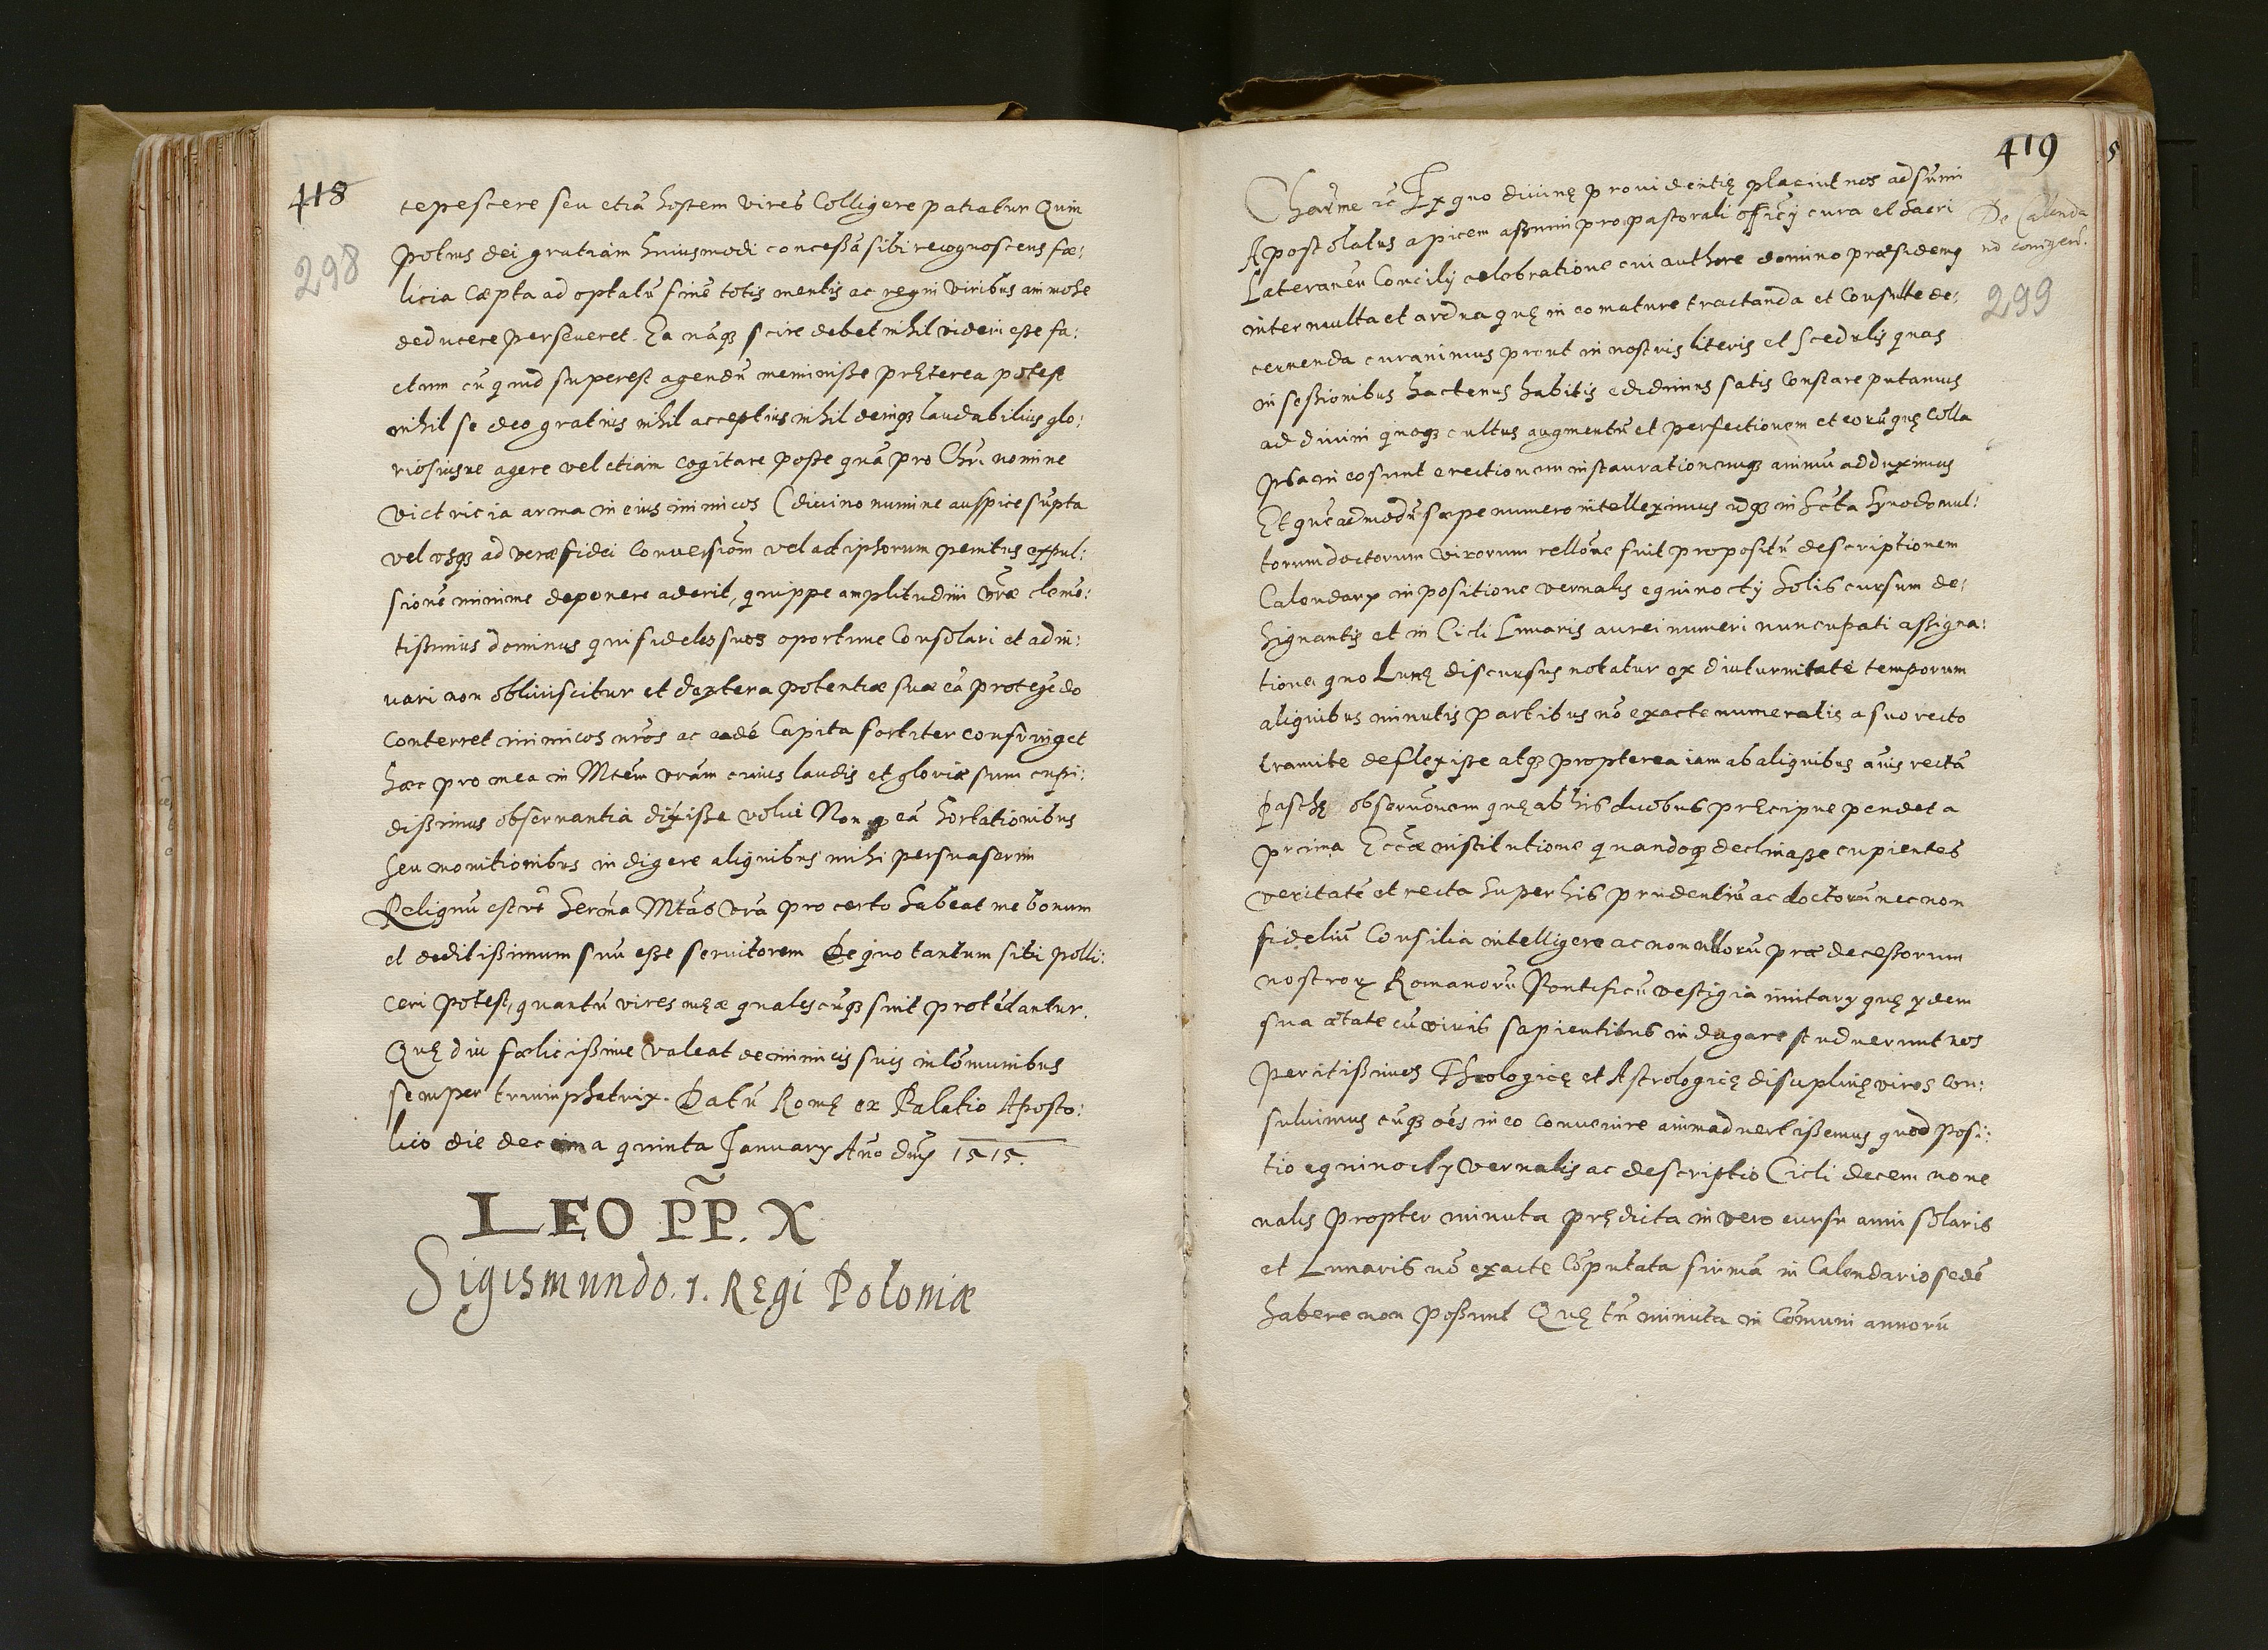 418
298
tepescere seu etiã hostem vires Colligere patiatur Quin
potius dei gratiam huiusmodi concessã sibi recognoscens fæ:
licia Cæpta ad optatũ finẽ totis mentis ac regni viribus animose
deducere perseueret. Ea nãq3 scire debet nihil videri esse fa:
ctum cũ quid superest agendũ meminisse pręterea potest
nihil se deo gratius nihil acceptius nihil deniq3 laudabilius glo:
riosiusue agere vel etiam cogitare posse quã pro Chri nomine
victricia arma in eius inimicos (diuino numine auspice sũpta
vel vsq3 ad veræ fidei Conuersiõm vel ad ipsorum penitus expul:
sionẽ minime deponere aderit, quippe amplitudini vræ clemẽ:
tissimus dominus qui fideles suos oportune Consolari et adiu:
uari non obliuiscitur et dextera potentiæ suæ eã protegẽdo
Conterret inimicos nros ac eadẽ Capita fortiter confringet
hæc pro mea in Mtẽm vrãm cuius laudis et gloriæ sum cupi:
dissimus obseruantia dixisse volui Non q eã hortationibus
seu monitionibus indigere aliquibus mihi persuaserim
Reliquũ est vt Serma Mtãs vrã pro certo habeat me bonum
et deditissimum suũ esse seruitorem De quo tantum sibi polli:
ceri potest, quantũ vires męæ qualescũq3 sint protẽdantur.
Quę diu fælicissime valeat de inimicis suis incõmunibus
semper triumphatrix. Datũ Romę ex Palatio Aposto:
lico die decima quinta January Año dny 1515.
LEO PP. X
Sigismundo. 1. Regi Poloniæ
419
5
De Calenda
rio corrigen.
299
Charme rc Ex quo diuinę prouidentię placuit nos ad sũmi
Apostolatus apicem assumi pro pastorali officij cura et sacri
Lateraneñ Concilij celebratione cui authore domino præsidemq
inter multa et ardua quę in eo mature tractanda et Consulte de:
cernenda curauimus prout in nostris literis et scedulis quas
in sessionibus hactenus habitis edidimus satis Constare putamus
ad diuini quoq3 cultus augmentũ et perfectionem et eorũ quę Colla
psa in eo sunt erectionem instaurationemq3 animũ adduximus
Et quẽadmodũ sæpenumero intelleximus idq3 in Scta Synodo mul:
torum doctorum virorum rellõne fuit propositũ descriptionem
Calendary in positione vernalis equinocty Solis cursum de:
signantis et in Cicli Lunaris aurei numeri nuncupati assigna:
tione quo Lunę discursus notatur ex diuturnitate temporum
aliquibus minutis partibus nõ exacte numeratis a suo recto
tramite deflexisse atq3 propterea iam ab aliquibus ãnis rectã
paschę obseruõnem quę ab his duobus pręcipue pendet a
prima Eccæ institutione quandoq3 declinasse cupientes
veritatẽ et recta super his prudentiũ ac doctorũ necnon
fidelium Consilia intelligere ac nonnullorũ prædecessorum
nostrorx Romanorũ Pontificũ vestigia imitary quę ydem
sua ætate cũ viris sapientibus indagare studuerunt nos
peritissimos Theologicę et Astrologicę disciplinę viros Con:
suluimus cũq3 oẽs in eo conuenire animaduertissemus quod posi:
tio equinocty Vernalis ac descriptio Cicli decem noue
nalis propter minuta prędicta in vero cursu anni solaris
et Lunaris nõ exacte Cõputata firmã in Calendario sedẽ
habere non possunt Quę tñ minuta in Cõmuni annorũ